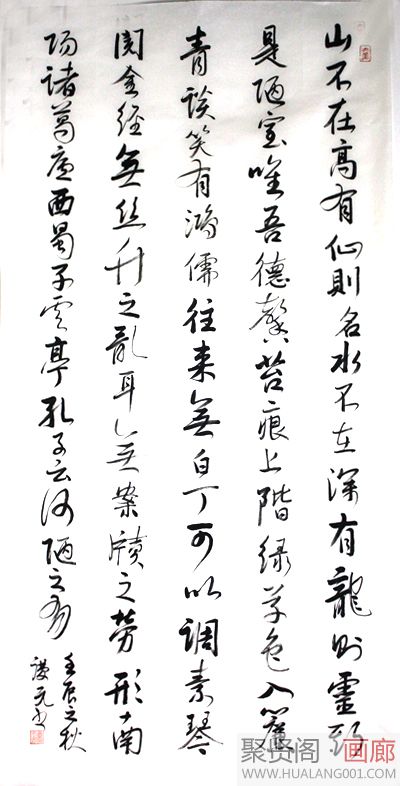 山不在高有仙則名水不在深有龍則靈斯
是陋室唯吾德馨苔痕上階绿草色入簾
青談笑有鴻儒往来無白丁可以調素琴
閱金經無丝竹之亂耳無案牘之勞形南
陽諸葛廬西蜀子雲亭孔子云何陋之有
壬辰之秋
元书
聚贤阁画廊
WWW.HUALANG001.COM